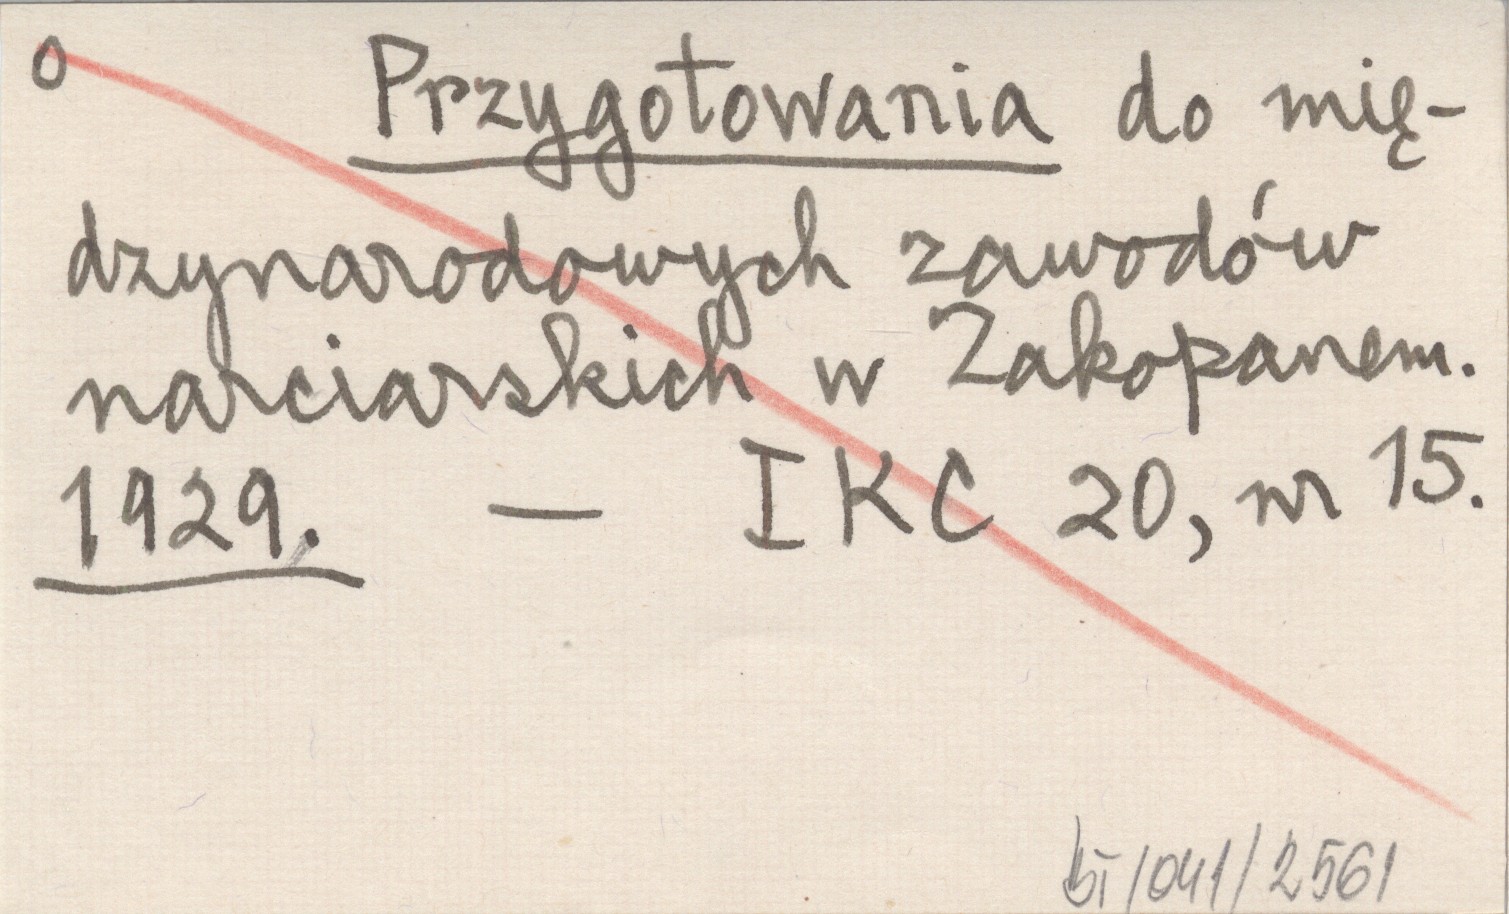 o Przygotowania do mię-
dzynarodowych zawodów
narciarskich w Zakopanem.
1929. — IKC 20, nr 15.
/041/2561